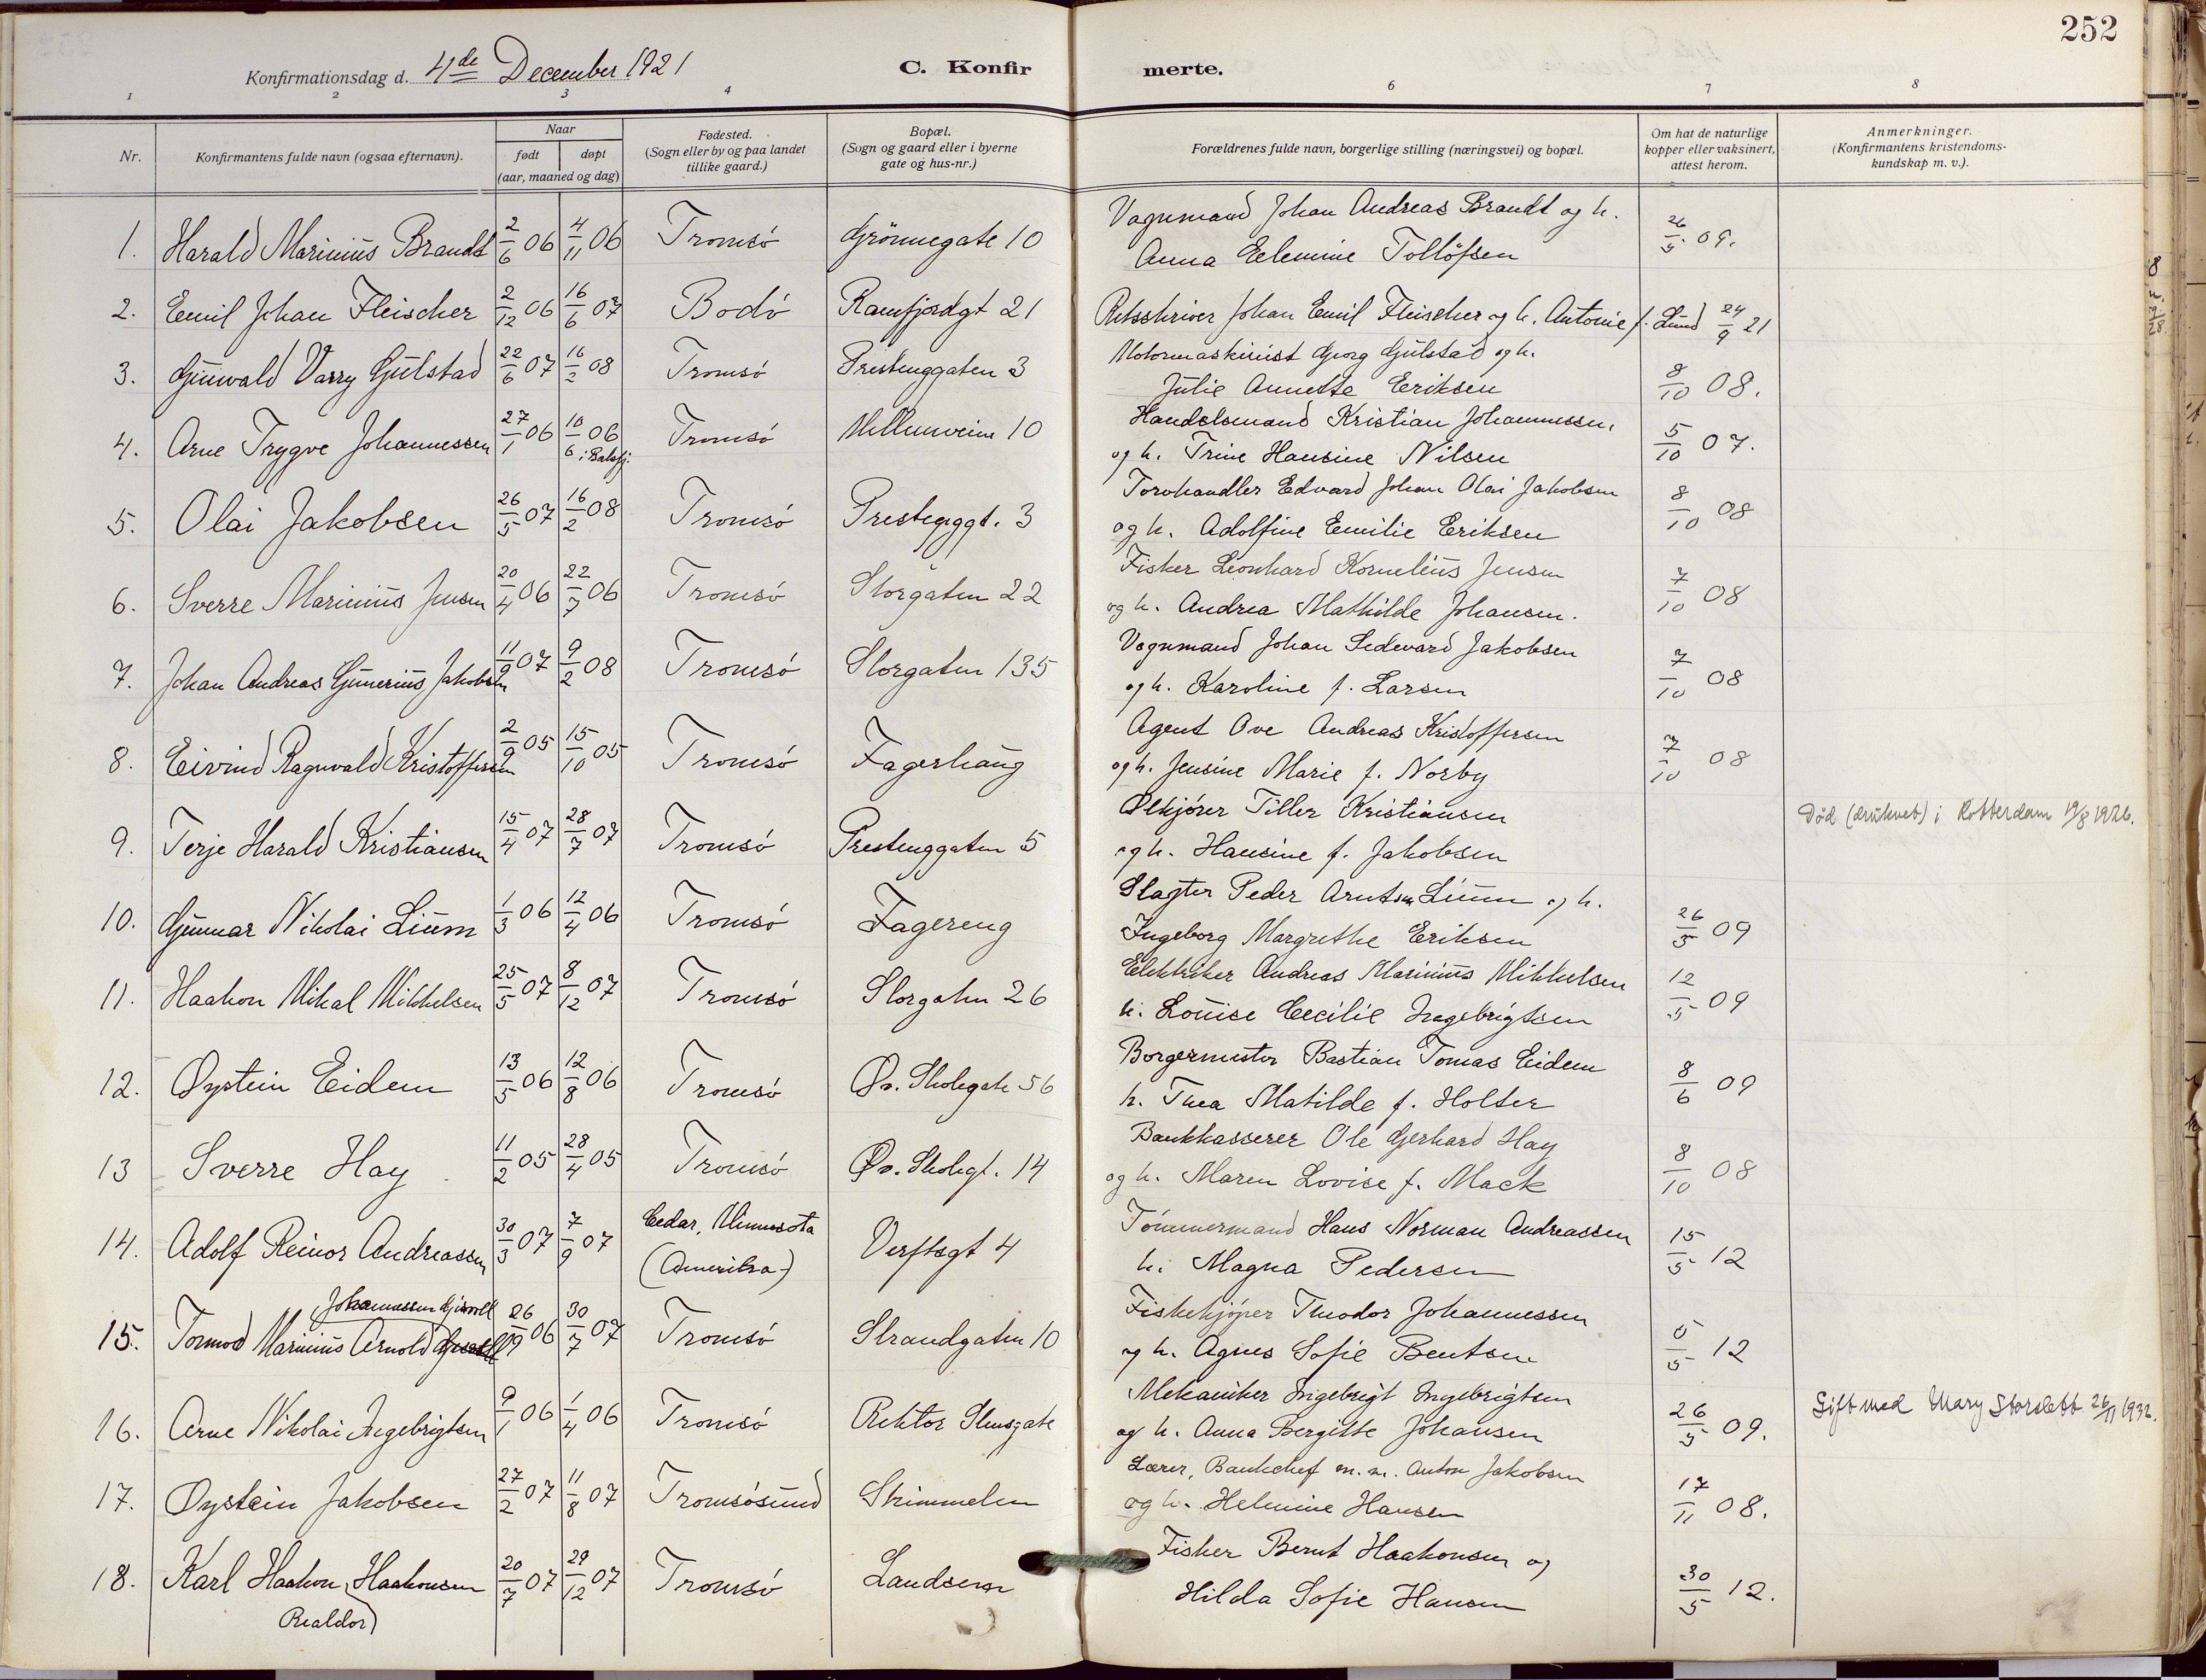 252
Konfirmationsdag d. 4de December 1921
C. Konfirmerte.
1 2 3 4 6 7 8
Nr.
Konfirmantens fulde navn (ogsaa efternavn).
Naar
født døpt
(aar, maaned og dag)
Fødested.
(Sogn eller by og paa landet
tillike gaard.)
Bopæl.
(Sogn og gaard eller i byerne
gate og hus-nr.)
Forældrenes fulde navn, borgerlige stilling (næringsvei) og bopæl.
Om hat de naturlige
kopper eller vaksinert,
attest herom.
Anmerkninger.
(Konfirmantens kristendoms-
kundskap m. v.).
1. Harald Marinius Brandt 2/6 06 4/11 06 Tromsö Grönnegate 10 Vognmand Johan Andreas Brandt og h.
Anna Elenine Tollöfsen 26/5 09.
2. Emil Johan Fleischer 2/12 06 16/6 07 Bodö Ramfjordgt 21 Retsskriver Johan Emil Fleischer og h. Antonie f. Lund 24/9 21
3. Gunwald Varry Gulstad 22/6 07 16/2 08 Tromsö Prestenggaten 3 Motormaskinist Georg Gulstad og h.
Julie Annette Eriksen 8/10 08.
4. Arne Trygve Johannessen 27/1 06 10/6 06 i Balsfj. Tromsö Mellemveien 10 Handelsmand Kristian Johannessen,
og h. Trine Hansine Nilsen 5/10 07.
5. Olai Jakobsen 26/5 07 16/2 08 Tromsö Presteggt. 3 Torvhandler Edvard Johan Olai Jakobsen
og h. Adolfine Emilie Eriksen 8/10 08
6. Sverre Marinius Jensen 20/4 06 22/7 06 Tromsö Storgaten 22 Fisker Leonhard Kornelius Jensen
og h. Andrea Mathilde Johansen. 7/10 08
7. Johan Andreas Gunerius Jakobsen 11/9 07 9/2 08 Tromsö Storgaten 135 Vognmand Johan Sedevard Jakobsen
og h. Karoline f. Larsen 7/10 08
8. Eivind Ragnvald Kristoffersen 2/9 05 15/10 05 Tromsö Fagerhaug Agent Ove Andreas Kristoffersen
og h. Jensine Marie f. Norby 7/10 08
9. Terje Harald Kristiansen 15/4 07 28/7 07 Tromsö Prestenggaten 5 Ølkjörer Tiller Kristiansen
og h. Hansine f. Jakobsen Död (druknet) i Rotterdam 19/8 1926.
10. Gunnar Nikolai Lium 1/3 06 12/4 06 Tromsö Fagereng Slagter Peder Arntsen Lium og h.
Ingeborg Margrethe Eriksen 26/5 09
11. Haakon Mikal Mikkelsen 25/5 07 8/12 07 Tromsö Storgaten 26 Elektriker Andreas Marinius Mikkelsen
h. Louise Cecilie Ingebrigtsen 12/5 09
12. Øystein Eidem 13/5 06 12/8 06 Tromsö Øv. Skolegate 56 Borgermester Bastian Tomas Eidem
h. Thea Matilde f. Holter 8/6 09
13 Sverre Hay 11/2 05 28/4 05 Tromsö Øv. Skolegt. 14 Bankkasserer Ole Gerhard Hay
og h. Maren Lovise f. Mack 8/10 08
14. Adolf Reinor Andreassen 30/3 07 7/9 07 Cedar, Minnesota
(Amerika) Verftsgt 4 Tömmermand Hans Norman Andreassen
h. Magna Pedersen 15/5 12
Johannessen Gjesvoll
15. Tormod Marinius Arnold 26/9 06 30/7 07 Tromsö Strandgaten 10 Fiskekjöper Theodor Johannessen
og h. Agnes Sofie Bentsen 5/5 12
16. Arne Nikolai Ingebrigtsen 9/1 06 1/4 06 Tromsö Rektor Steensgate Mekaniker Ingebrigt Ingebrigtsen
og h. Anna Bergitte Johansen 26/5 09. Gift med Mary Storslett 26/11 1932.
17. Øystein Jakobsen 27/2 07 11/8 07 Tromsösund Skimmelen Lærer, Bankchef m.m. Anton Jakobsen
og h. Helmine Hansen 17/11 08.
18. Karl Haakon Haakonsen
Realdor 20/7 07 29/12 07 Tromsö Landsem Fisker Bernt Haakonsen og
Hilda Sofie Hansen 30/5 12.